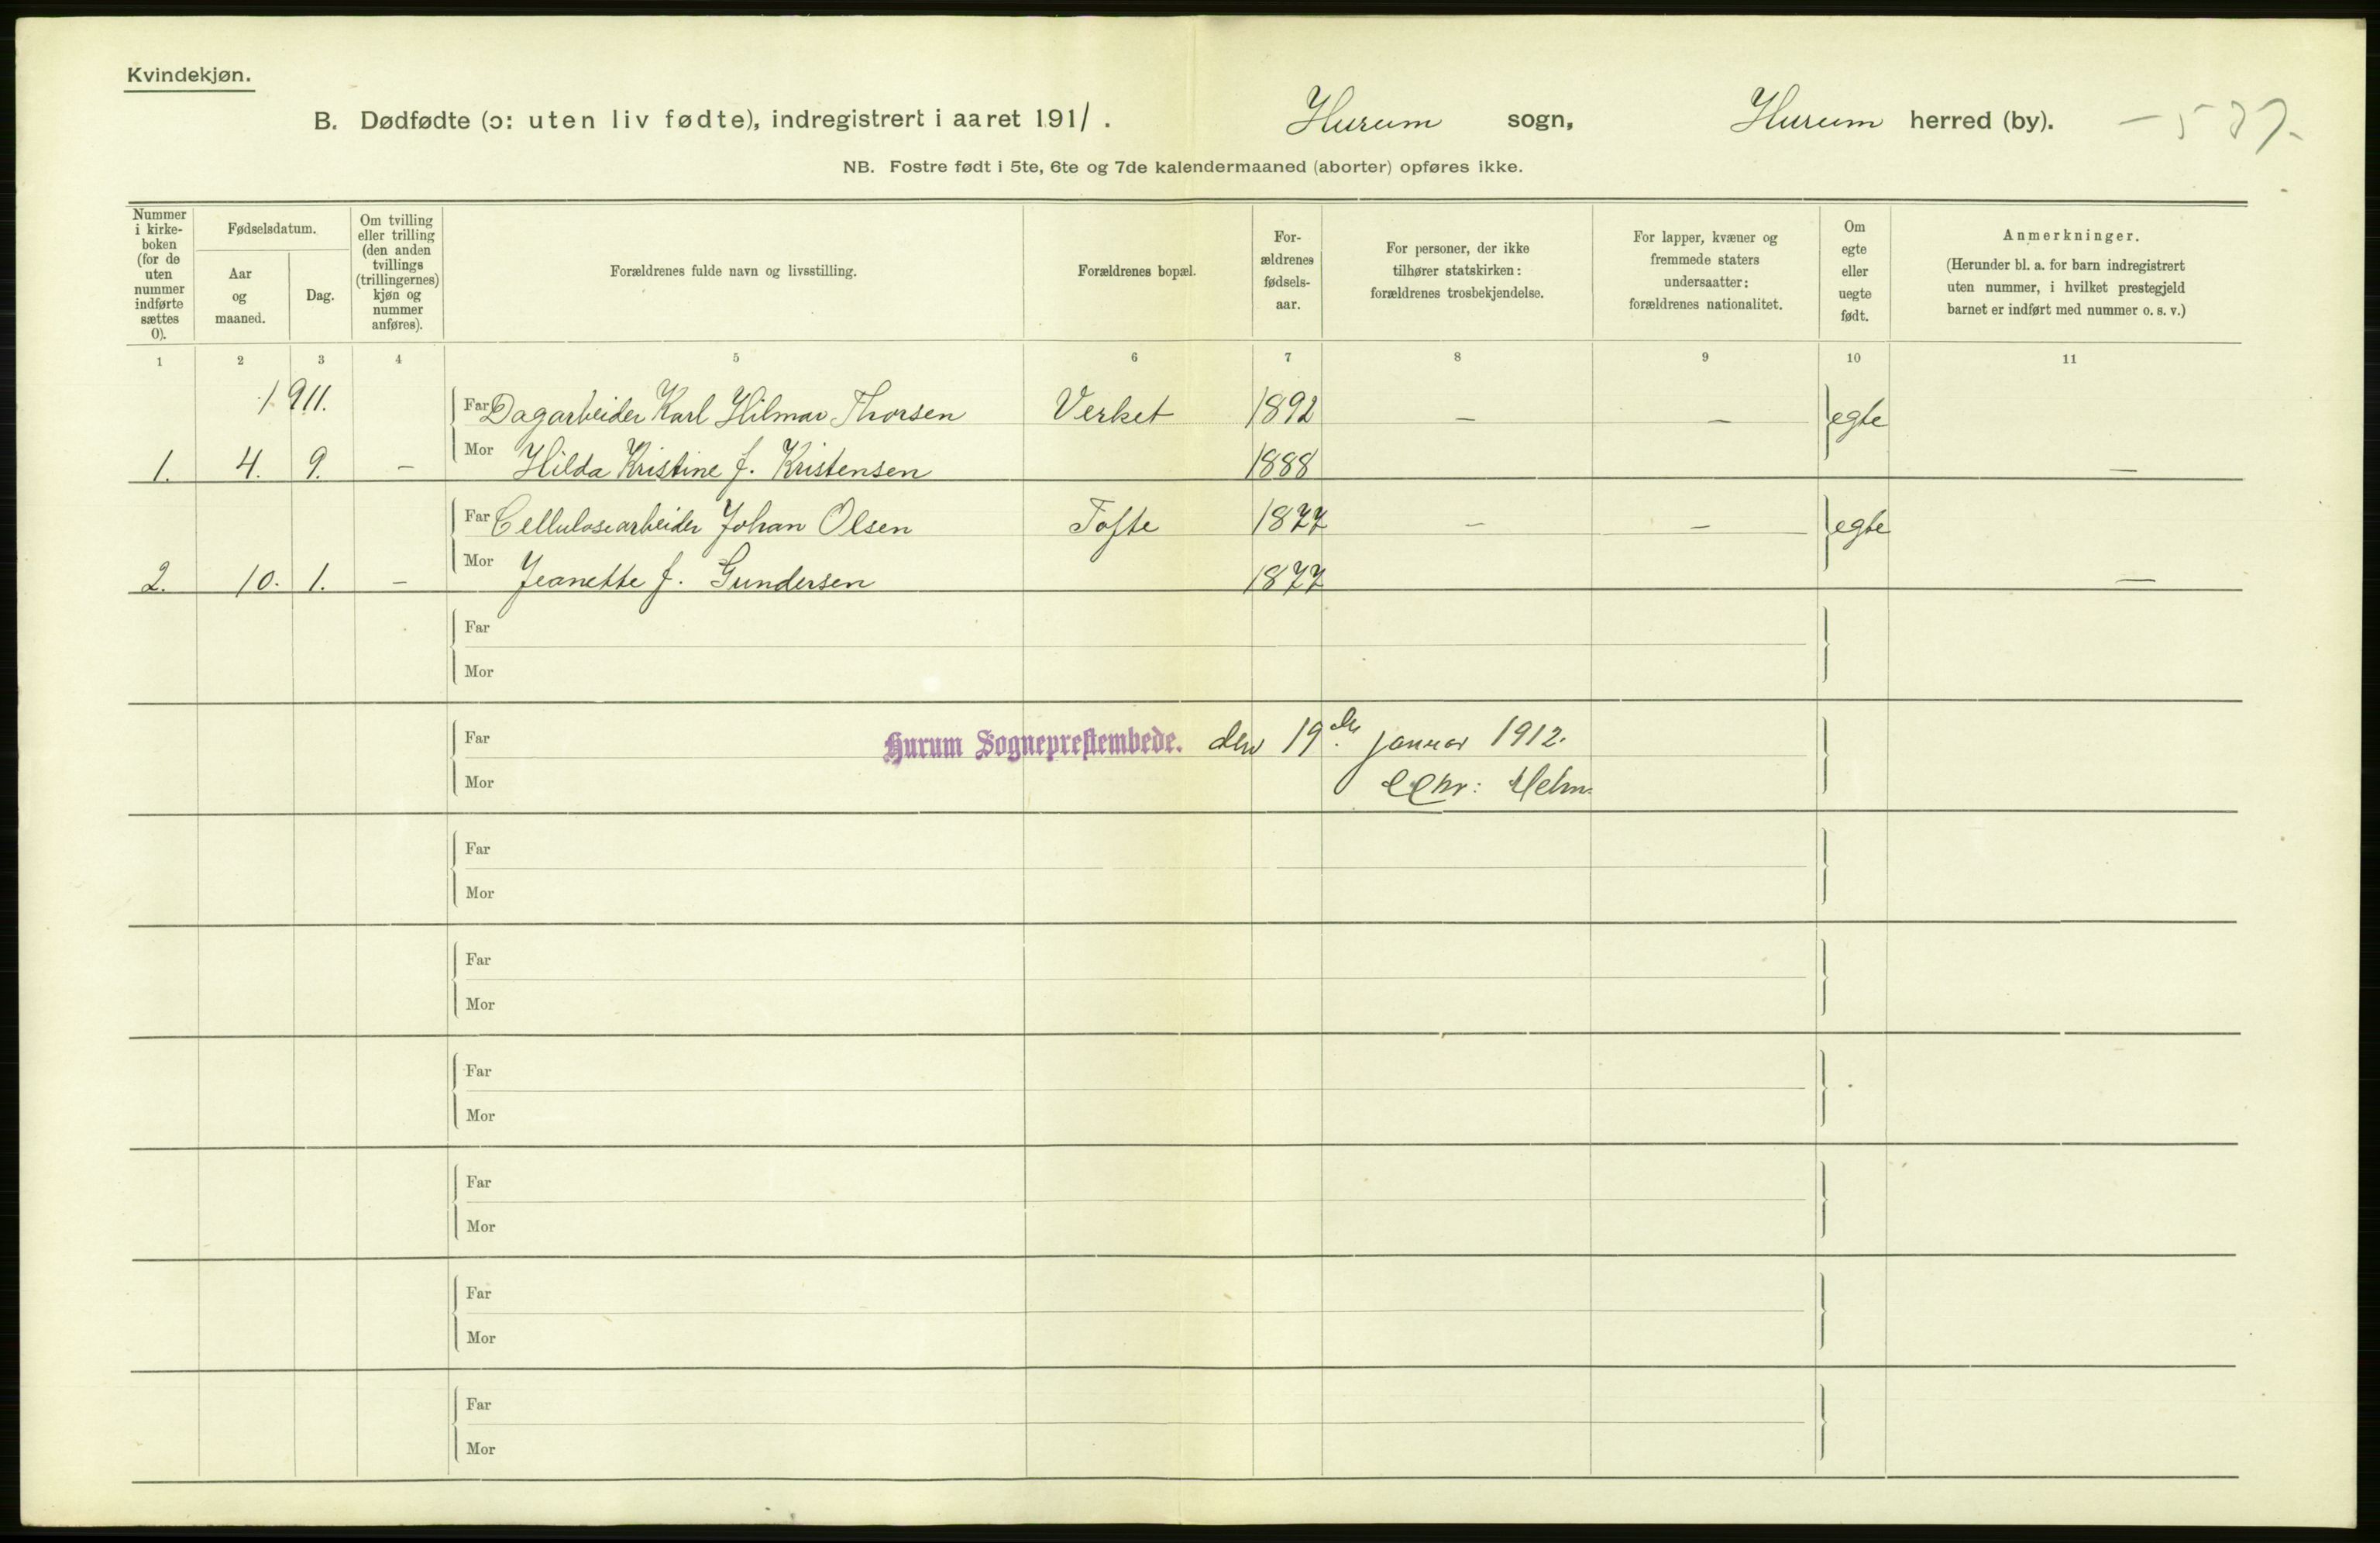 Kvindekjøn.
B. Dødfødte (ɔ: uten liv fødte), indregistrert i aaret 1911. Hurum sogn, Hurum herred (by).
NB. Fostre født i 5te, 6te og 7de kalendermaaned (aborter) opføres ikke.
Nummer i kirkeboken (for de uten nummer indførte sættes 0).
Fødselsdatum.
Aar og maaned.
Dag.
Om tvilling eller trilling (den anden tvillings (trillingernes) kjøn og nummer anføres).
Forældrenes fulde navn og livsstilling.
Forældrenes bopæl.
Forældrenes fødselsaar.
For personer, der ikke tilhører statskirken: forældrenes trosbekjendelse.
For lapper, kvæner og fremmede staters undersaatter: forældrenes nationalitet.
Om egte eller uegte født.
Anmerkninger.
(Herunder bl. a. for barn indregistrert uten nummer, i hvilket prestegjeld barnet er indført med nummer o. s. v.)
1 2 3 4 5 6 7 8 9 10 11
1911. Far Dagarbeider Karl Hilmar Thorsen Verket 1892 – – egte
1. 4. 9. – Mor Hilda Kristine f. Kristensen 1888 –
Far Cellulosearbeider Johan Olsen Tofte 1877 – – egte
2. 10. 1. – Mor Jeanette f. Gundersen 1877 –
Far
Mor
Far Hurum Sogneprestembede. den 19de januar 1912.
Mor
Far
Mor
Far
Mor
Far
Mor
Far
Mor
Far
Mor
Far
Mor